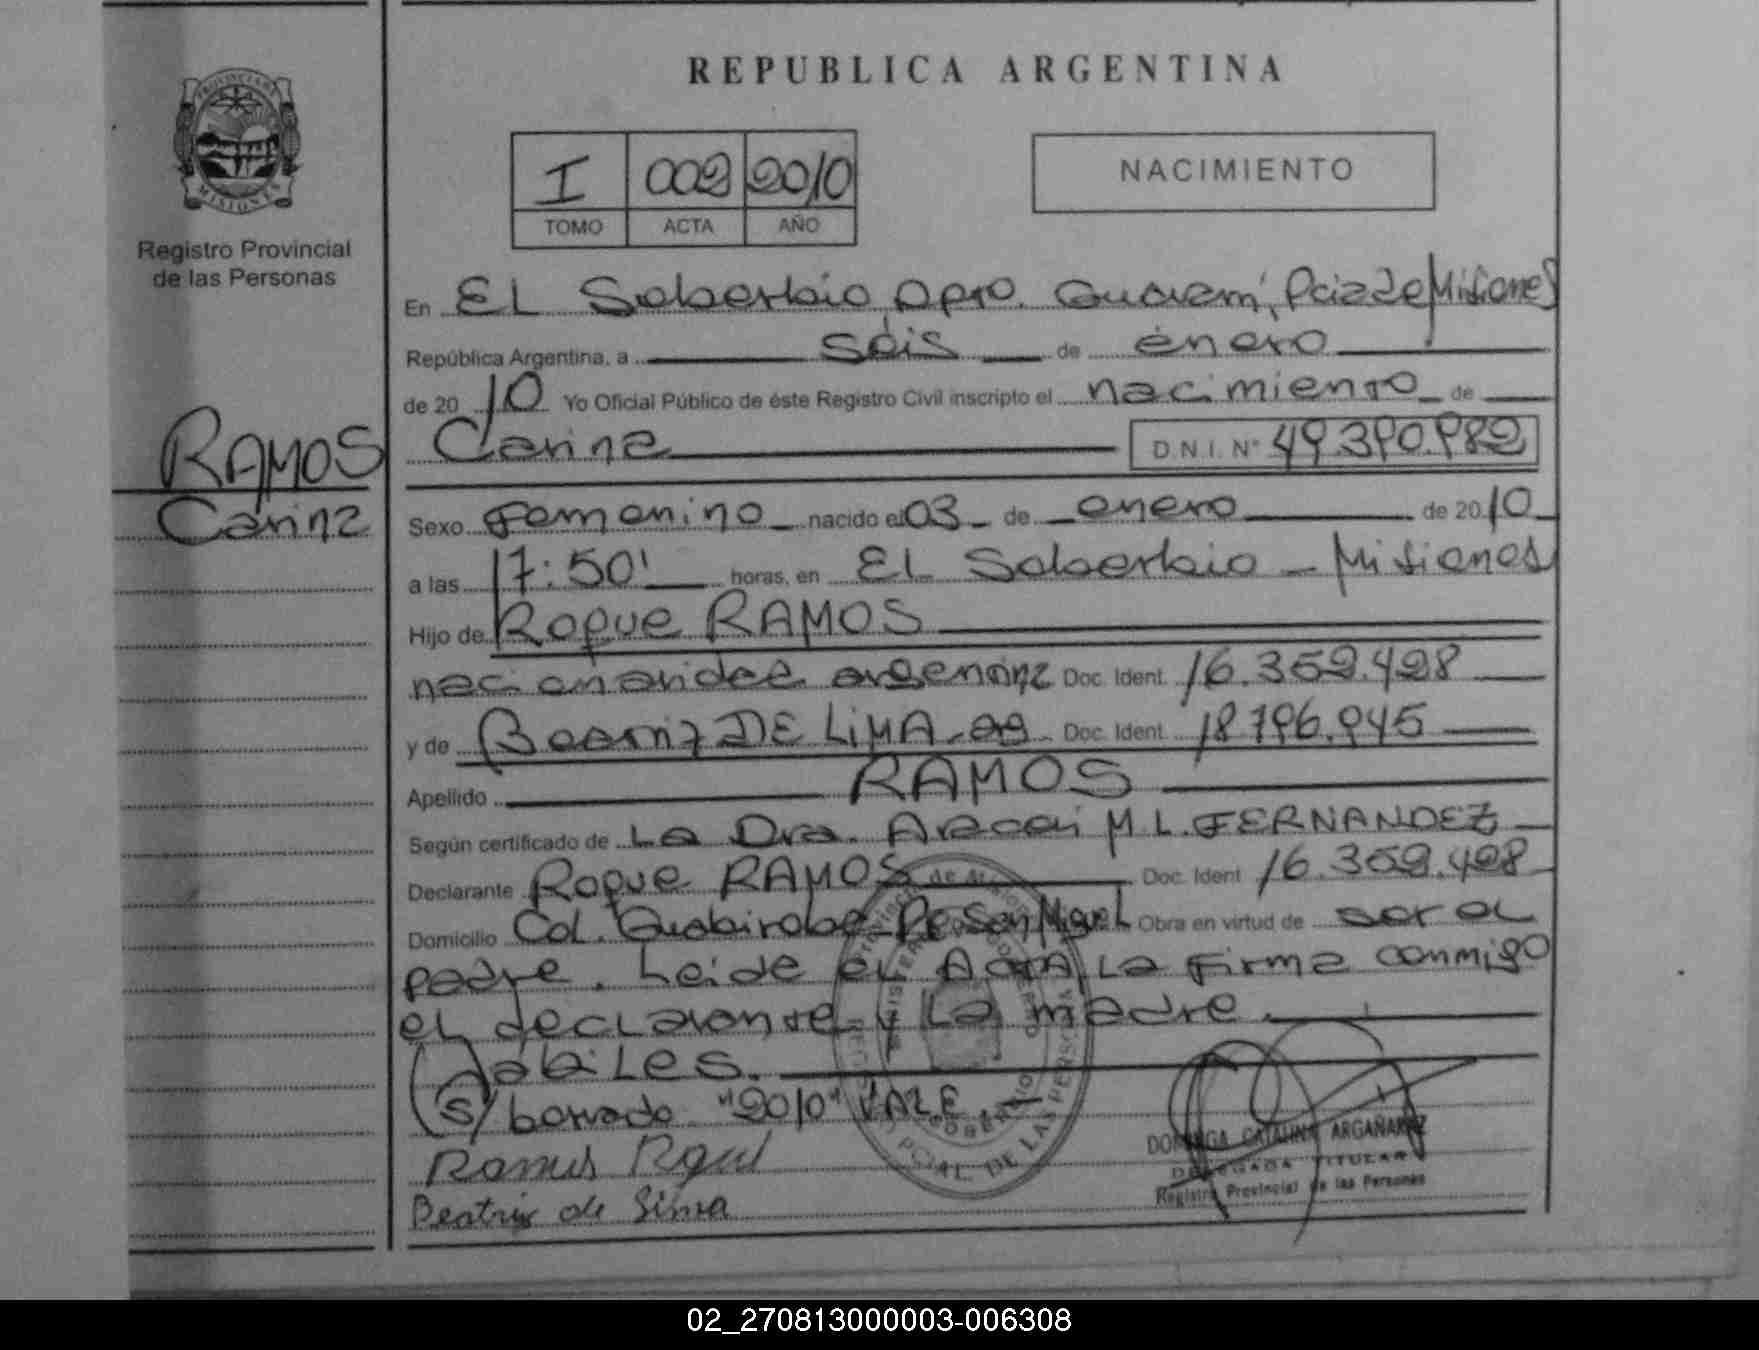 REPUBLICA ARGENTINA
PROVINCIA DE MISIONES
Registro Provincial
de las Personas
I 002 2010
TOMO ACTA AÑO
NACIMIENTO
En El Soberbio Dpto. Guaraní, Pcia de Misiones
República Argentina, a seis de enero
de 2010 Yo Oficial Público de éste Registro Civil inscripto el nacimiento de
Carina D.N.I. Nº
RAMOS
Carina
Sexo Femenino nacido el 03 de enero de 2010
a las 17:50' horas, en El Soberbio - Misiones
Hijo de Roque RAMOS
nacionalidad argentina Doc. Ident. 16.359.428
y de Beatriz DE LIMA Doc. Ident. 18.796.945
Apellido RAMOS
Según certificado de La Dra. Araceli M.L. FERNANDEZ
Declarante Roque RAMOS Doc. Ident 16.359.428
Domicilio Col. Guabiroba San Miguel Obra en virtud de ser el
padre. Leida el Acta, la firma conmigo
el declarante y la madre.
Hábiles.
S/ borrado "2010" VALE.
Ramos
Beatriz de Lima
DOMINGA CATALINA ARGAÑARAZ
DELEGADA TITULAR
Registro Provincial de las Personas
02_270813000003-006308